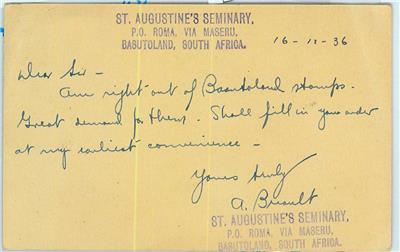 ST. AUGUSTINE'S SEMINARY,
P.O. ROMA, VIA MASERU,
BASUTOLAND, SOUTH AFRICA.
16-11-36
Dear Sir -
Am right out of Basutoland stamps.
Great demand for them. Shall fill in your order
at my earliest convenience -
Yours truly
A. Briault
ST. AUGUSTINE'S SEMINARY,
P.O. ROMA, VIA MASERU,
BASUTOLAND, SOUTH AFRICA.